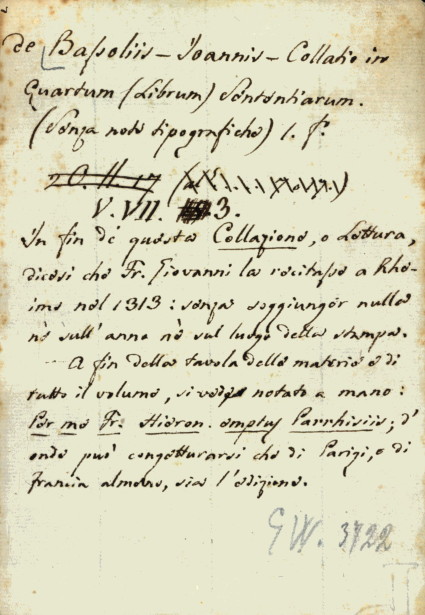 de Bassoliis – Joannis – Collatio in
Quartum (Librum) Sententiarum.
(Senza note tipografiche) 1. f.º
20. H. 17
V. VII. 3.
In fin de questa Collazione, o Lettura,
dicesi che Fr. Giovanni la recitasse a Rhe-
ims nel 1313: senza soggiunger nulla
nè sull'anno nè sul luogo della stampa.
A fin della tavola delle materie e di
tutto il volume, si vede notato a mano:
Per me Fr. Hieron. emptus Parrhisiis; d'
onde può congetturarsi che di Parigi, o di
Francia almeno, sia l'edizione.
GW. 3722